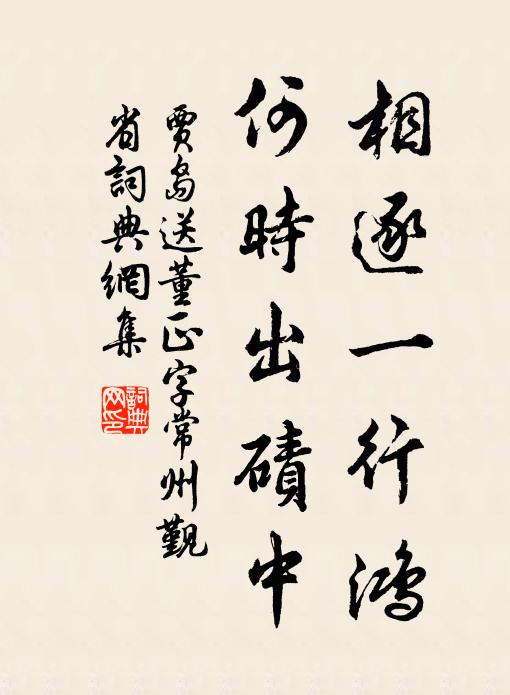 相逐一行鴻
何時出磧中
賈島送董正字常州覲
省詞典網集
詞典
网印